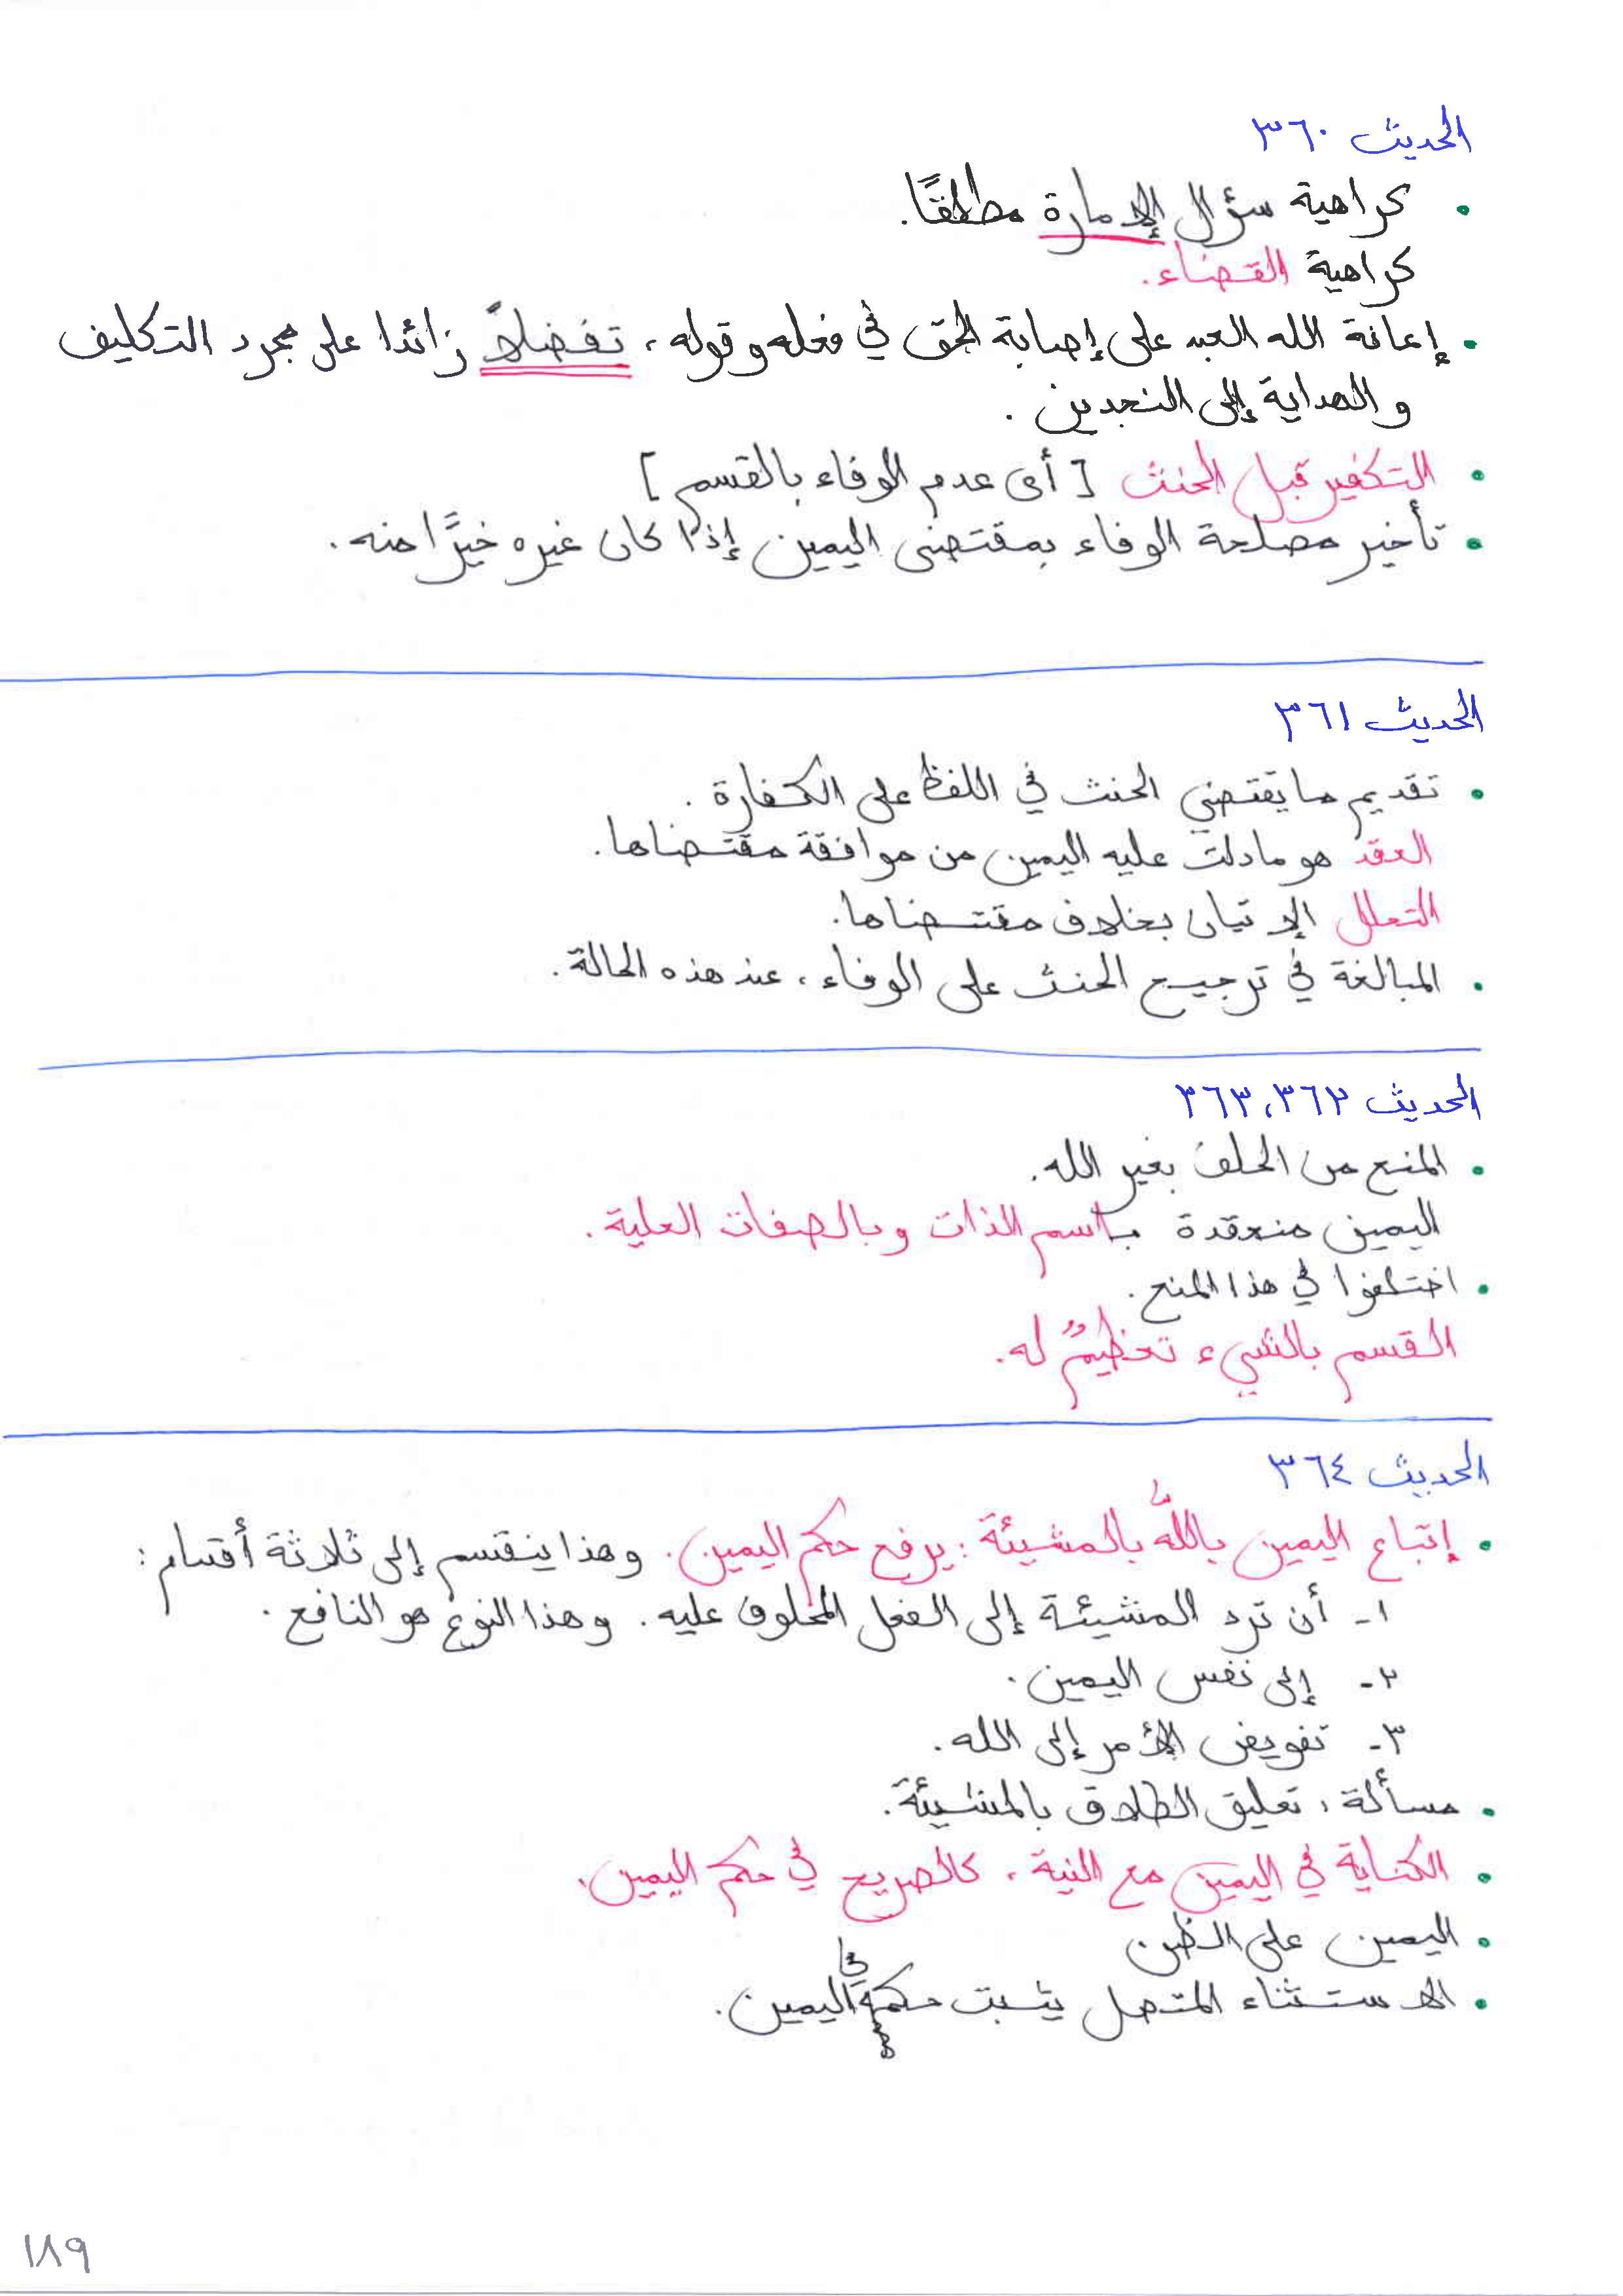 الحديث ٣٦٠
• كراهية سؤال الإمارة مطلقًا.
كراهية القضاء.
• إعانة الله العبد على إصابة الحق في فعله وقوله، تفضلاً زائدا على مجرد التكليف
والهداية إلى النجدين.
• التكفير قبل الحنث [أى عدم الوفاء بالقسم]
• تأخير مصلحة الوفاء بمقتضى اليمين إذا كان غيره خيرًا منه.
الحديث ٣٦١
• تقديم ما يقتضي الحنث في اللفظ على الكفارة.
العقد هو ما دلت عليه اليمين من موافقة مقتضاها.
التحلل الإتيان بخلاف مقتضاها.
• المبالغة في ترجيح الحنث على الوفاء، عند هذه الحالة.
الحديث ٣٦٢، ٣٦٣
• المنع من الحلف بغير الله.
اليمين منعقدة باسم الذات وبالصفات العلية.
• اختلفوا في هذا المنع.
القسم بالشيء تعظيمٌ له.
الحديث ٣٦٤
• إتباع اليمين باللَّه بالمشيئة: يرفع حكم اليمين. وهذا ينقسم إلى ثلاثة أقسام:
١- أن ترد المشيئة إلى الفعل المحلوف عليه. وهذا النوع هو النافع.
٢- إلى نفس اليمين.
٣- تفويض الأمر إلى الله.
• مسألة، تعليق الطلاق بالمشيئة.
• الكناية في اليمين مع النية، كالصريح في حكم اليمين.
• اليمين على الظن
• الاستثناء المتصل يثبت حكمه في اليمين.
١٨٩